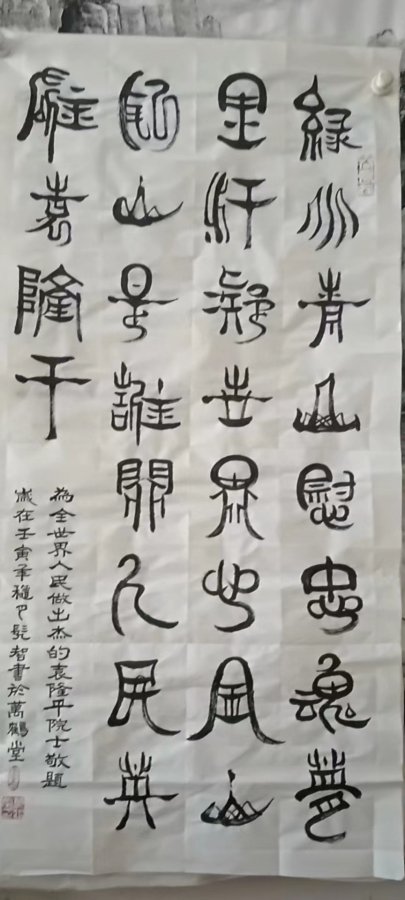 綠水青山慰忠魂夢
里汗凝世界山
山是誰開人民英
雄袁隆平
為全世界人民做出杰的袁隆平院士敬題
歲在壬寅年穐月智書於萬鶴堂